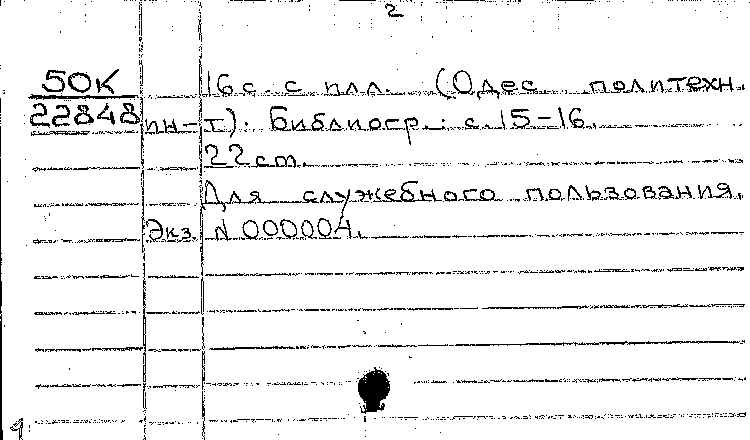 2
50К 16 с. с илл. (Одес. политехн.
22848 ин-т). Библиогр.: с. 15-16.
22 cm.
Для служебного пользования.
Экз. N 000004.